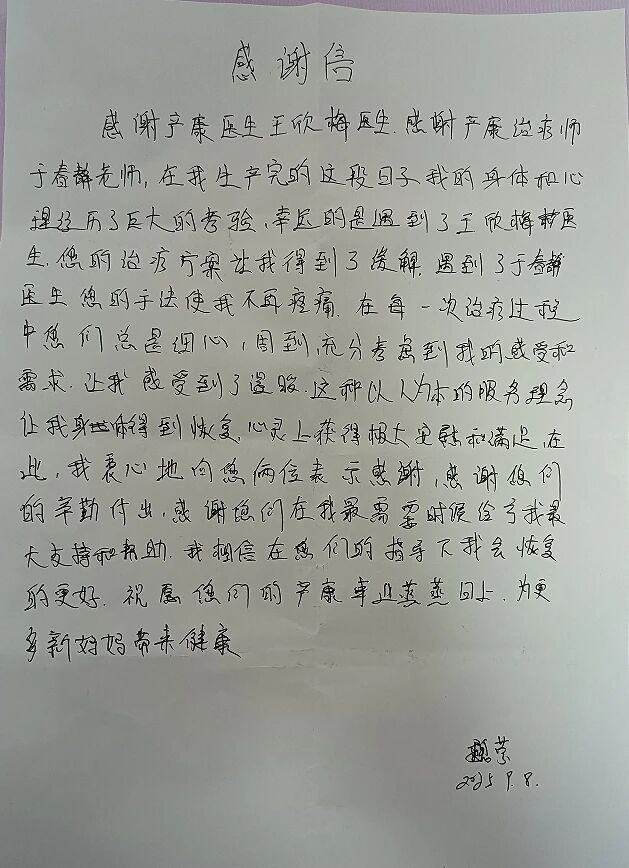 感谢信
感谢产康医生王欣梅医生.感谢产康治疗师
于春静老师,在我生产完的这段日子我的身体和心
理经历了巨大的考验、幸运的是遇到了王欣梅医
生.您的治疗方案让我得到了缓解.遇到了于春静
医生您的手法使我不再疼痛.在每一次治疗过程
中您们总是细心,周到,充分考虑到我的感受和
需求.让我感受到了温暖.这种以人为本的服务理念
让我身体得到恢复,心灵上获得极大安慰和满足,在
此,我衷心地向您俩位表示感谢,感谢您们
的辛勤付出,感谢您们在我最需要时候给予我最
大支持和帮助.我相信在您们的指导下我会恢复
的更好.祝愿您们的产康事业蒸蒸日上.为更
多新妈妈带来健康
荣
2025.9.8.